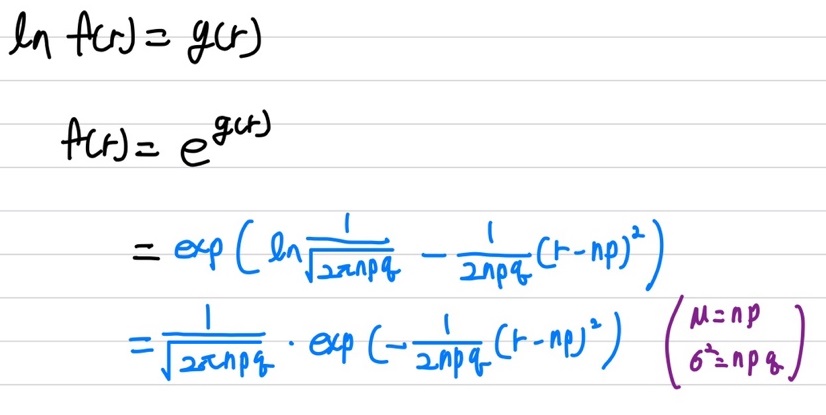 ln f(r) = g(r)
f(r) = e^{g(r)}
= exp ( ln 1/√(2πnpq) − 1/(2npq) (r−np)² )
= 1/√(2πnpq) · exp ( − 1/(2npq) (r−np)² ) ( μ=np
σ²=npq )